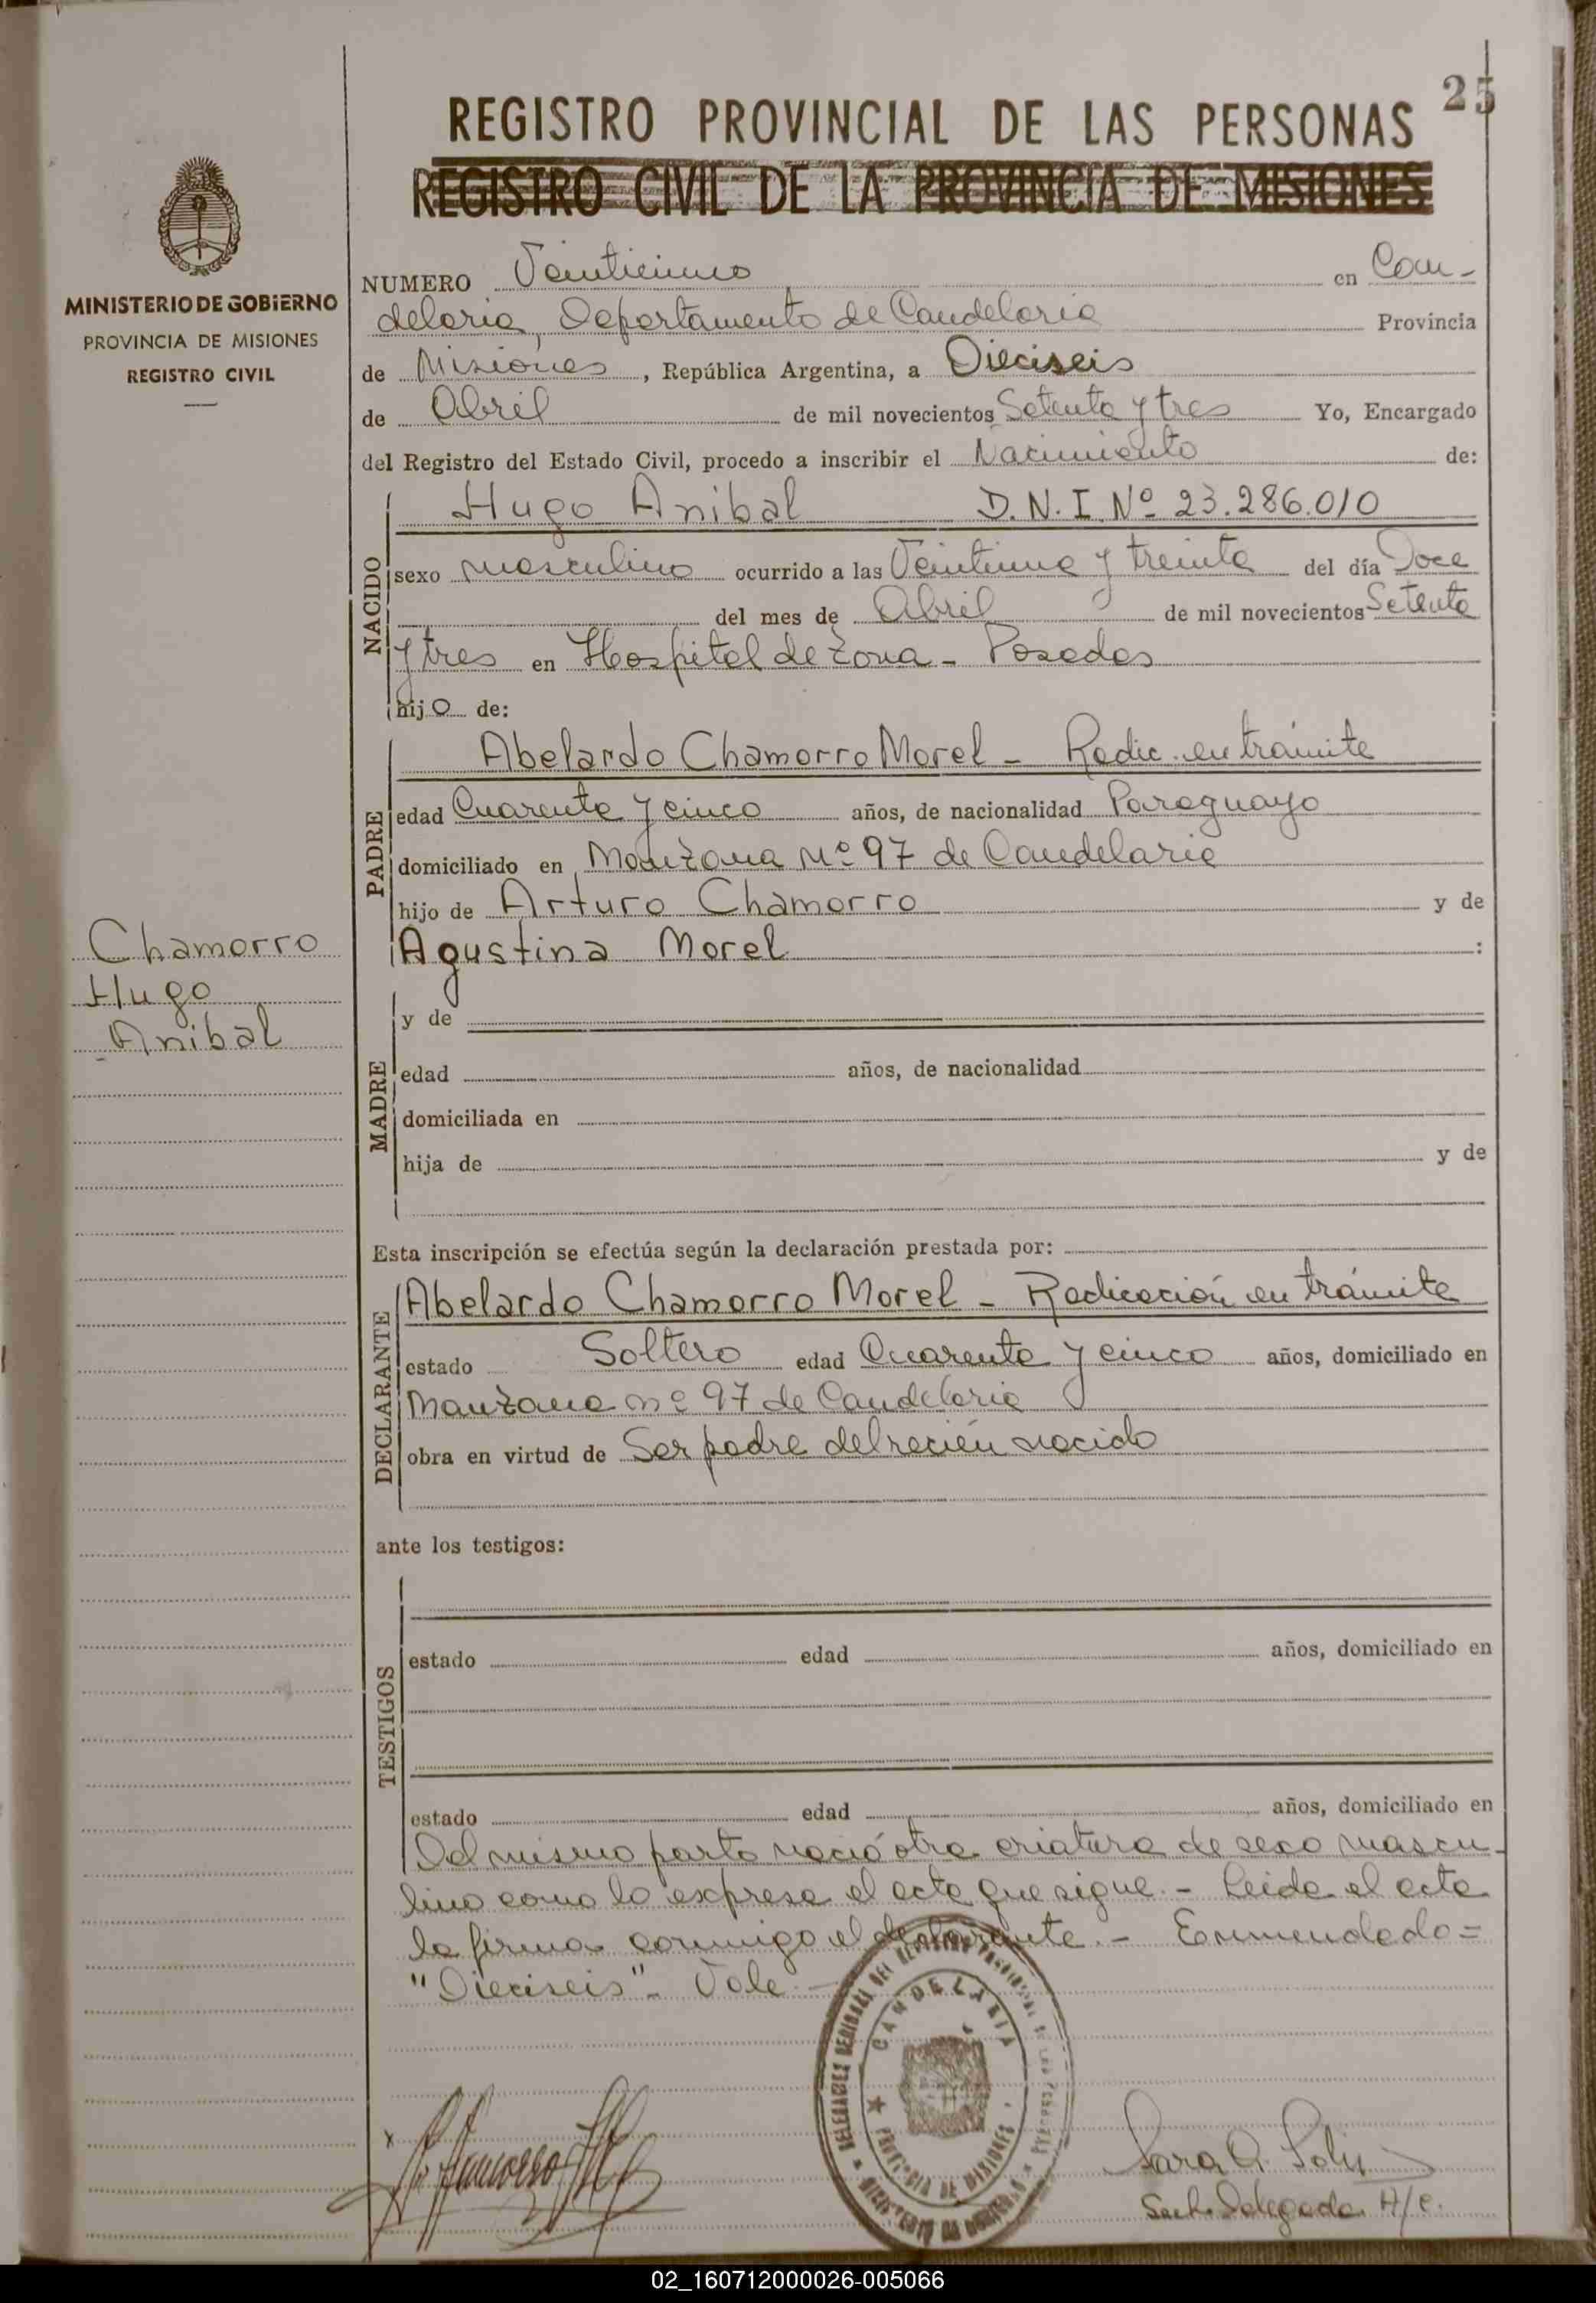 25
REGISTRO PROVINCIAL DE LAS PERSONAS
REGISTRO CIVIL DE LA PROVINCIA DE MISIONES
MINISTERIO DE GOBIERNO
PROVINCIA DE MISIONES
REGISTRO CIVIL
NUMERO Veinticinco en Can-
delaria, Departamento de Candelaria Provincia
de Misiones, República Argentina, a Dieciseis
de Abril de mil novecientos Setenta y tres Yo, Encargado
del Registro del Estado Civil, procedo a inscribir el Nacimiento de:
NACIDO
Hugo Anibal D.N.I. Nº 23.286.010
sexo masculino ocurrido a las Veintiuna y treinta del día Doce
del mes de Abril de mil novecientos Setenta
y tres en Hospital de Zona - Posadas
hijo de:
PADRE
Abelardo Chamorro Morel - Radic. en trámite
edad Cuarenta y cinco años, de nacionalidad Paraguayo
domiciliado en Manzana Nº 97 de Candelaria
hijo de Arturo Chamorro y de
Agustina Morel :
Chamorro
Hugo
Anibal
MADRE
y de
edad años, de nacionalidad
domiciliada en
hija de y de
Esta inscripción se efectúa según la declaración prestada por:
DECLARANTE
Abelardo Chamorro Morel - Radicación en trámite
estado Soltero edad Cuarenta y cinco años, domiciliado en
Manzana nº 97 de Candelaria
obra en virtud de Ser padre del recién nacido
ante los testigos:
TESTIGOS
estado edad años, domiciliado en
estado edad años, domiciliado en
Del mismo parto nació otra criatura de sexo mascu-
lino como lo expresa el acta que sigue.- Leida el acta
la firma conmigo el declarante.- Enmendado=
"Dieciseis". Vale.-
CANDELARIA
PROVINCIA DE MISIONES
Sara
Delegada A/c.
02_160712000026-005066